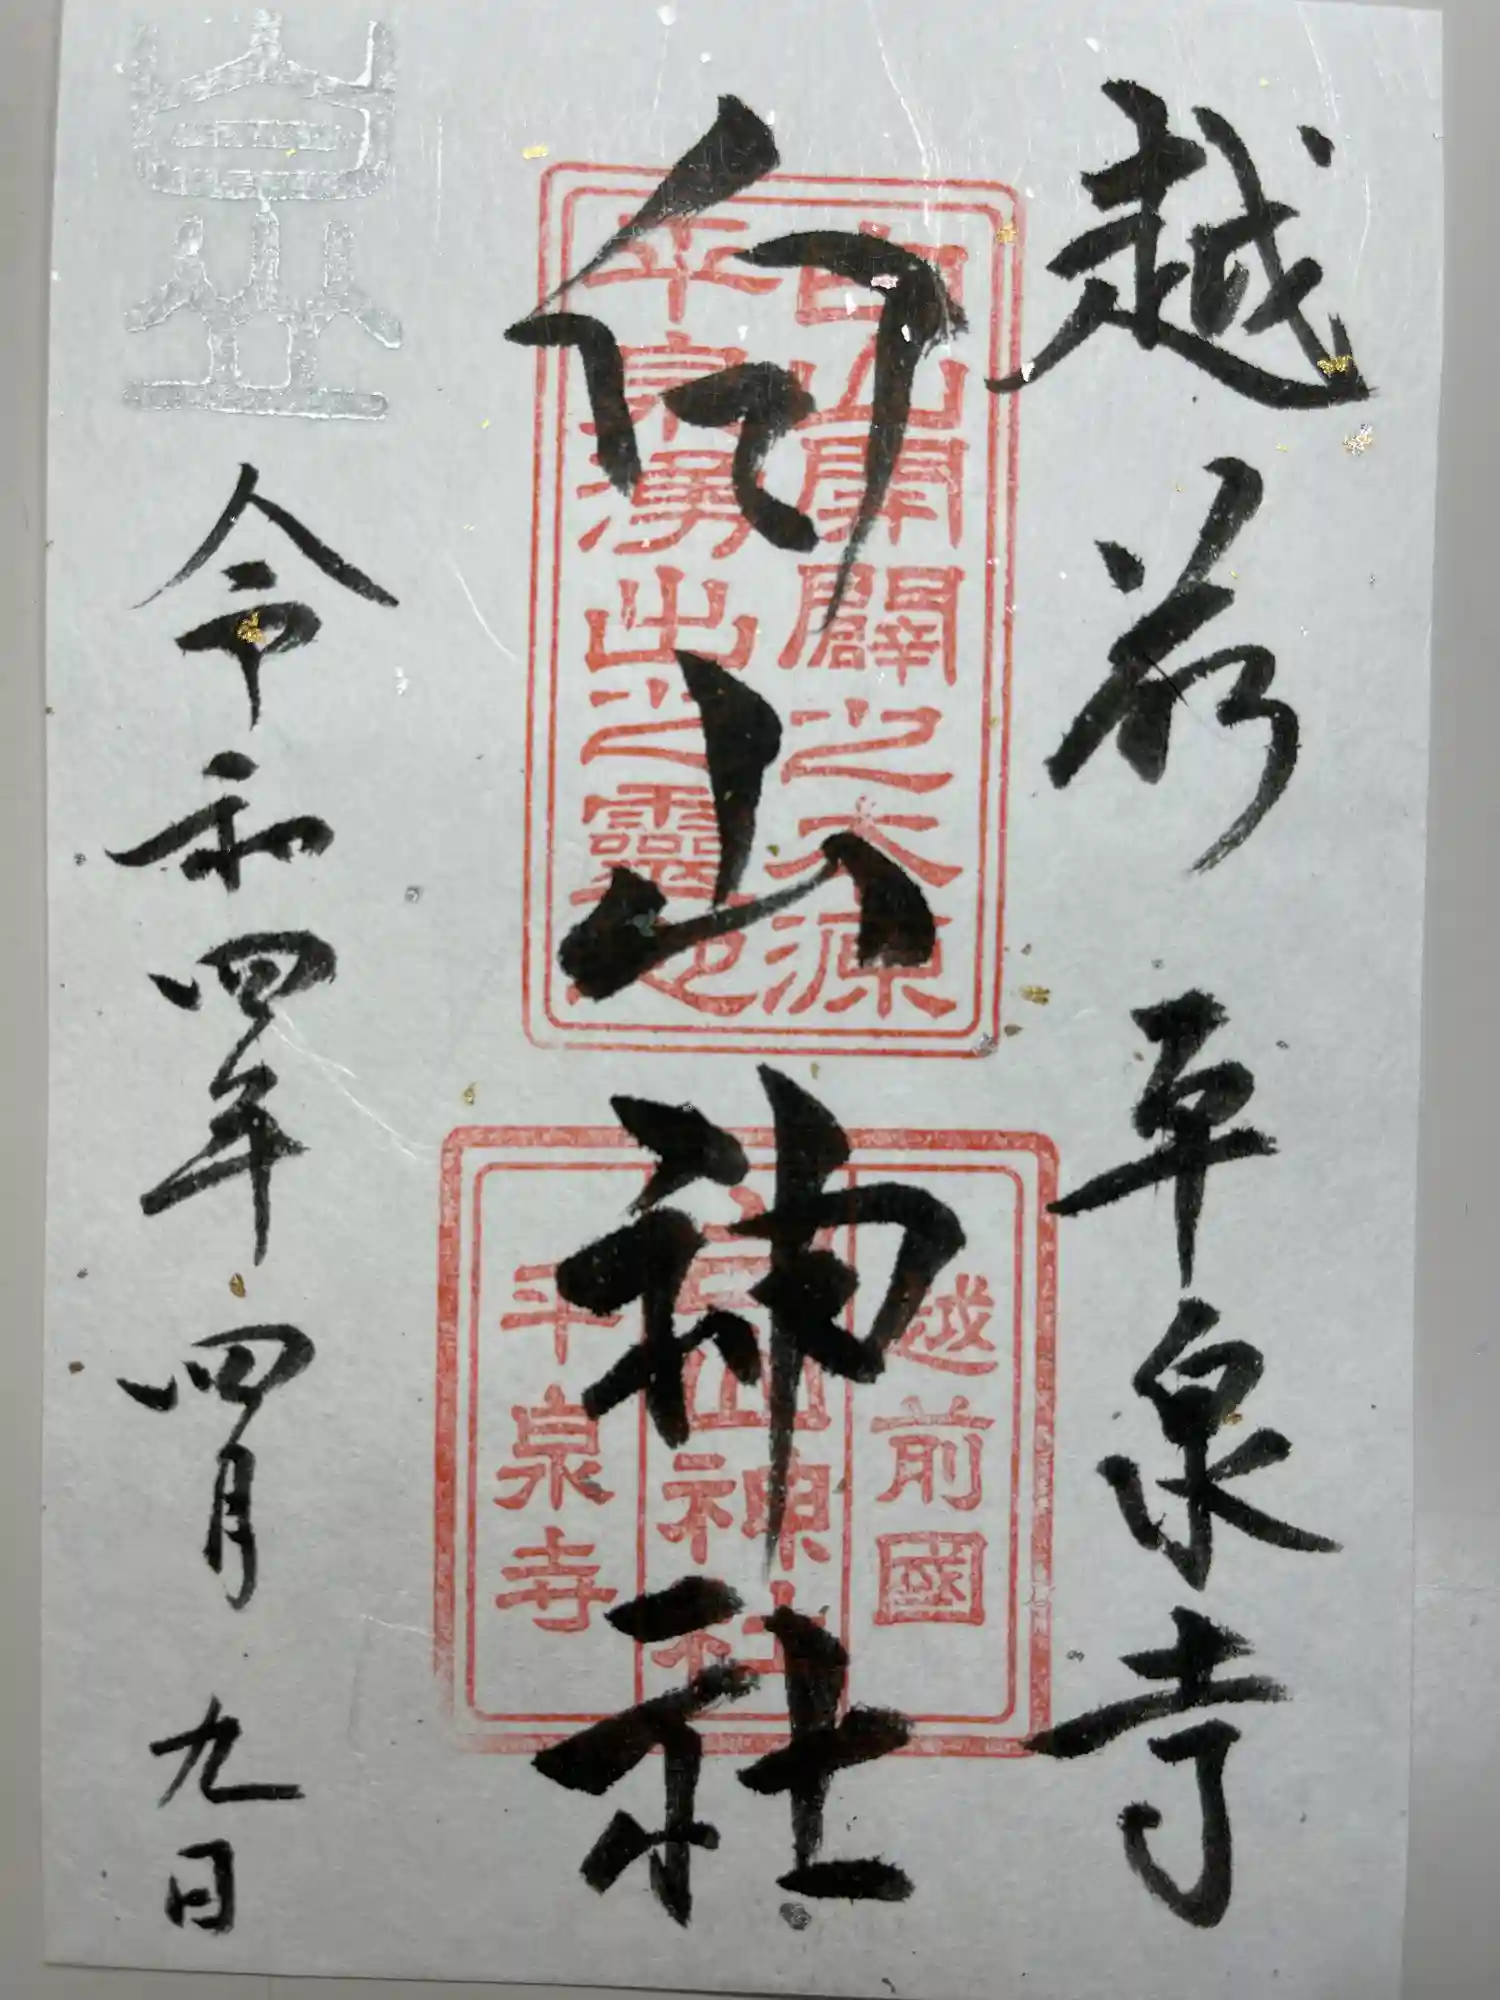 越前 平泉寺
白山神社
令和四年 四月 九日
白山開闢之本源
平泉湧出之靈地
越前國
白山神社
平泉寺